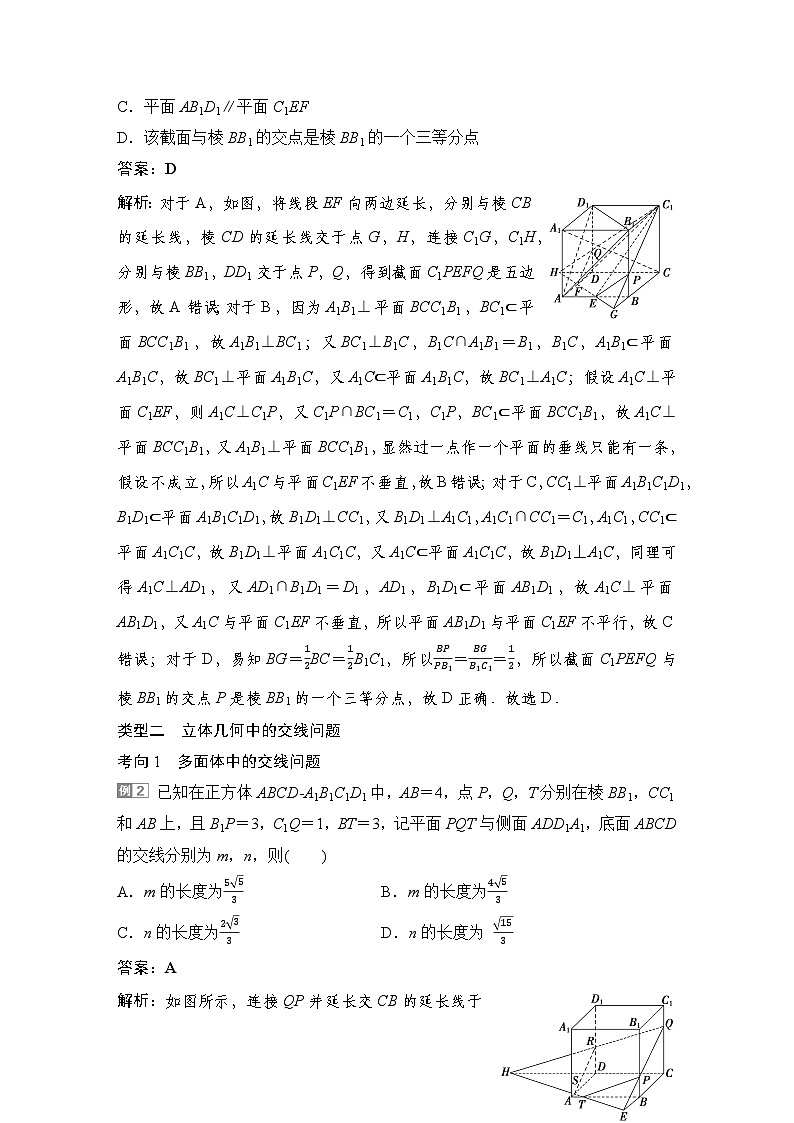 C．平面 AB₁D₁∥平面 C₁EF
D．该截面与棱 BB₁的交点是棱 BB₁的一个三等分点
答案：D
解析：对于 A，如图，将线段 EF 向两边延长，分别与棱 CB
的延长线，棱 CD 的延长线交于点 G，H，连接 C₁G，C₁H，
分别与棱 BB₁，DD₁交于点 P，Q，得到截面 C₁PEFQ 是五边
形，故 A 错误；对于 B，因为 A₁B₁⊥平面 BCC₁B₁，BC₁⊂平
面 BCC₁B₁，故 A₁B₁⊥BC₁；又 BC₁⊥B₁C，B₁C∩A₁B₁＝B₁，B₁C，A₁B₁⊂平面
A₁B₁C，故 BC₁⊥平面 A₁B₁C，又 A₁C⊂平面 A₁B₁C，故 BC₁⊥A₁C；假设 A₁C⊥平
面 C₁EF，则 A₁C⊥C₁P，又 C₁P∩BC₁＝C₁，C₁P，BC₁⊂平面 BCC₁B₁，故 A₁C⊥
平面 BCC₁B₁，又 A₁B₁⊥平面 BCC₁B₁，显然过一点作一个平面的垂线只能有一条，
假设不成立，所以 A₁C 与平面 C₁EF 不垂直，故 B 错误；对于 C，CC₁⊥平面 A₁B₁C₁D₁，
B₁D₁⊂平面 A₁B₁C₁D₁，故 B₁D₁⊥CC₁，又 B₁D₁⊥A₁C₁，A₁C₁∩CC₁＝C₁，A₁C₁，CC₁⊂
平面 A₁C₁C，故 B₁D₁⊥平面 A₁C₁C，又 A₁C⊂平面 A₁C₁C，故 B₁D₁⊥A₁C，同理可
得 A₁C⊥AD₁，又 AD₁∩B₁D₁＝D₁，AD₁，B₁D₁⊂平面 AB₁D₁，故 A₁C⊥平面
AB₁D₁，又 A₁C 与平面 C₁EF 不垂直，所以平面 AB₁D₁与平面 C₁EF 不平行，故 C
错误；对于 D，易知 BG＝1/2BC＝1/2B₁C₁，所以BP/PB₁＝BG/B₁C₁＝1/2，所以截面 C₁PEFQ 与
棱 BB₁的交点 P 是棱 BB₁的一个三等分点，故 D 正确．故选 D．
D₁ C₁
A₁ B₁
Q
H D P C
A F E B
G
类型二　立体几何中的交线问题
考向 1　多面体中的交线问题
例 2 已知在正方体 ABCD-A₁B₁C₁D₁中，AB＝4，点 P，Q，T 分别在棱 BB₁，CC₁
和 AB 上，且 B₁P＝3，C₁Q＝1，BT＝3，记平面 PQT 与侧面 ADD₁A₁，底面 ABCD
的交线分别为 m，n，则(　　)
A．m 的长度为5√5/3　　B．m 的长度为4√5/3
C．n 的长度为2√3/3　　D．n 的长度为 √15/3
答案：A
解析：如图所示，连接 QP 并延长交 CB 的延长线于
D₁ C₁
A₁ B₁ Q
R
H S D P C
A T B
E